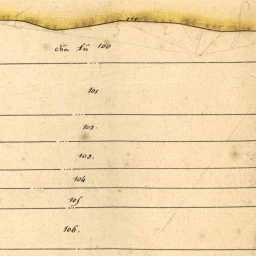 100
101
102.
103.
104
105
106.